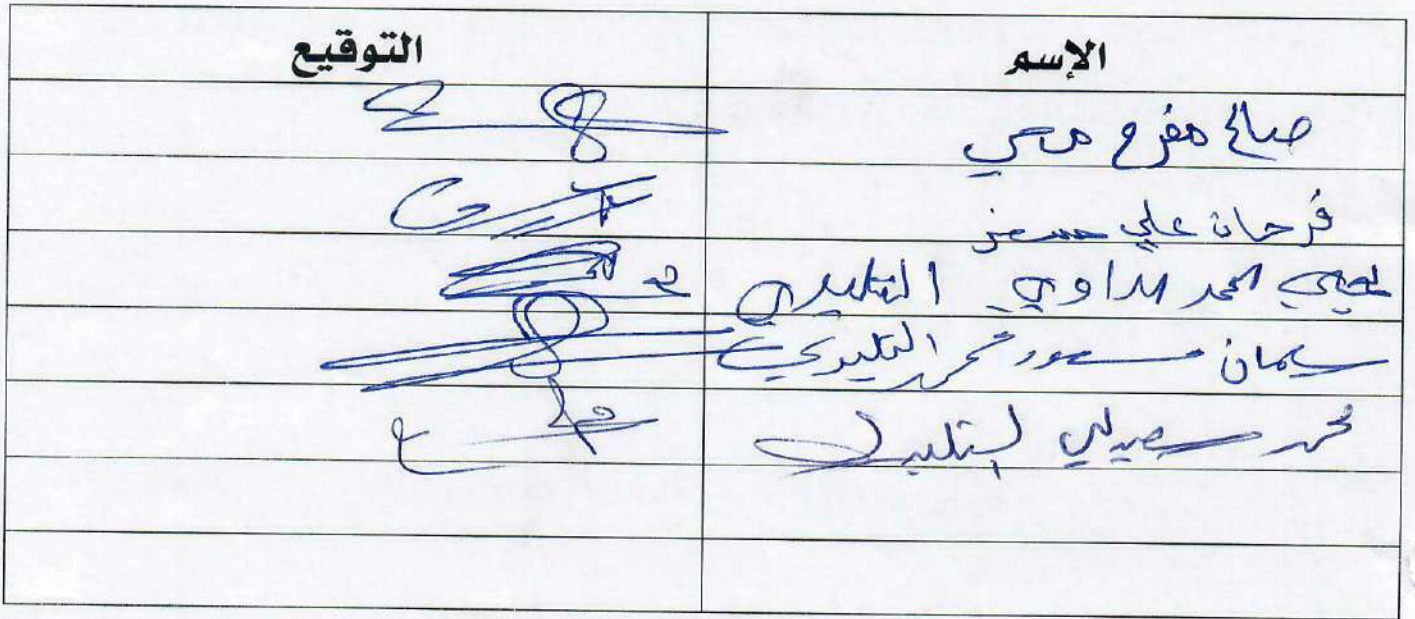 الإسم التوقيع
صالح مفرح
فرحان علي
يحيى محمد التليدي
سلمان مسعود محمد التليدي
محمد التليدي